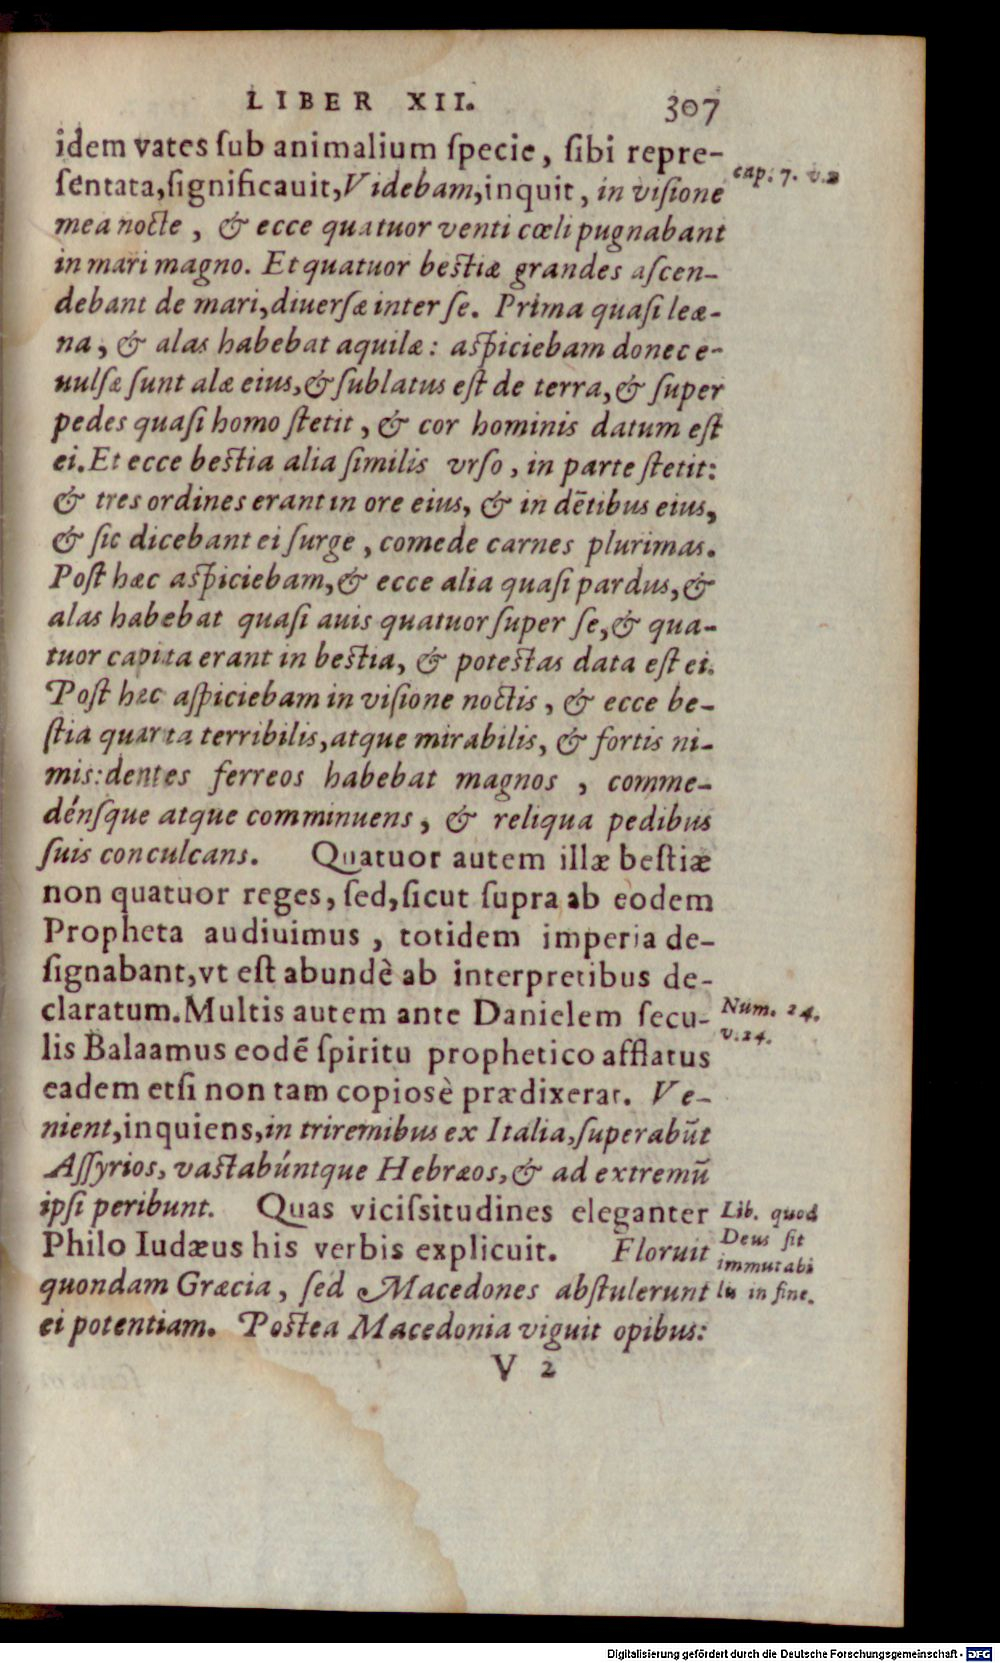 LIBER XII. 307
idem vates ſub animalium ſpecie, ſibi repre-
ſentata,ſignificauit,Videbam,inquit, in viſione
cap. 7. v.2
mea nocte, & ecce quatuor venti cœli pugnabant
in mari magno. Et quatuor beſtiæ grandes aſcen-
debant de mari,diuerſæ inter ſe. Prima quaſi leæ-
na, & alas habebat aquilæ: aſpiciebam donec e-
uulſæ ſunt alæ eius,& ſublatus eſt de terra,& ſuper
pedes quaſi homo ſtetit, & cor hominis datum eſt
ei.Et ecce beſtia alia ſimilis vrſo, in parte ſtetit:
& tres ordines erant in ore eius, & in dētibus eius,
& ſic dicebant ei ſurge, comede carnes plurimas.
Poſt hæc aſpiciebam,& ecce alia quaſi pardus,&
alas habebat quaſi auis quatuor ſuper ſe,& qua-
tuor capita erant in beſtia, & poteſtas data eſt ei.
Poſt hæc aſpiciebam in viſione noctis, & ecce be-
ſtia quarta terribilis,atque mirabilis, & fortis ni-
mis:dentes ferreos habebat magnos, comme-
dénſque atque comminuens, & reliqua pedibus
ſuis conculcans. Quatuor autem illæ beſtiæ
non quatuor reges, ſed,ſicut ſupra ab eodem
Propheta audiuimus, totidem imperia de-
ſignabant,vt eſt abundè ab interpretibus de-
claratum.Multis autem ante Danielem ſecu-
Num. 24.
v.24.
lis Balaamus eodē ſpiritu prophetico afflatus
eadem etſi non tam copiosè prædixerat. Ve-
nient,inquiens,in triremibus ex Italia,ſuperabūt
Aſſyrios, vaſtabúntque Hebræos,& ad extremū
ipſi peribunt. Quas viciſsitudines eleganter
Philo Iudæus his verbis explicuit. Floruit
Lib. quod
Deus ſit
immutabi
lis in fine.
quondam Græcia, ſed Macedones abſtulerunt
ei potentiam. Poſtea Macedonia viguit opibus:
V 2
Digitalisierung gefördert durch die Deutsche Forschungsgemeinschaft - DFG